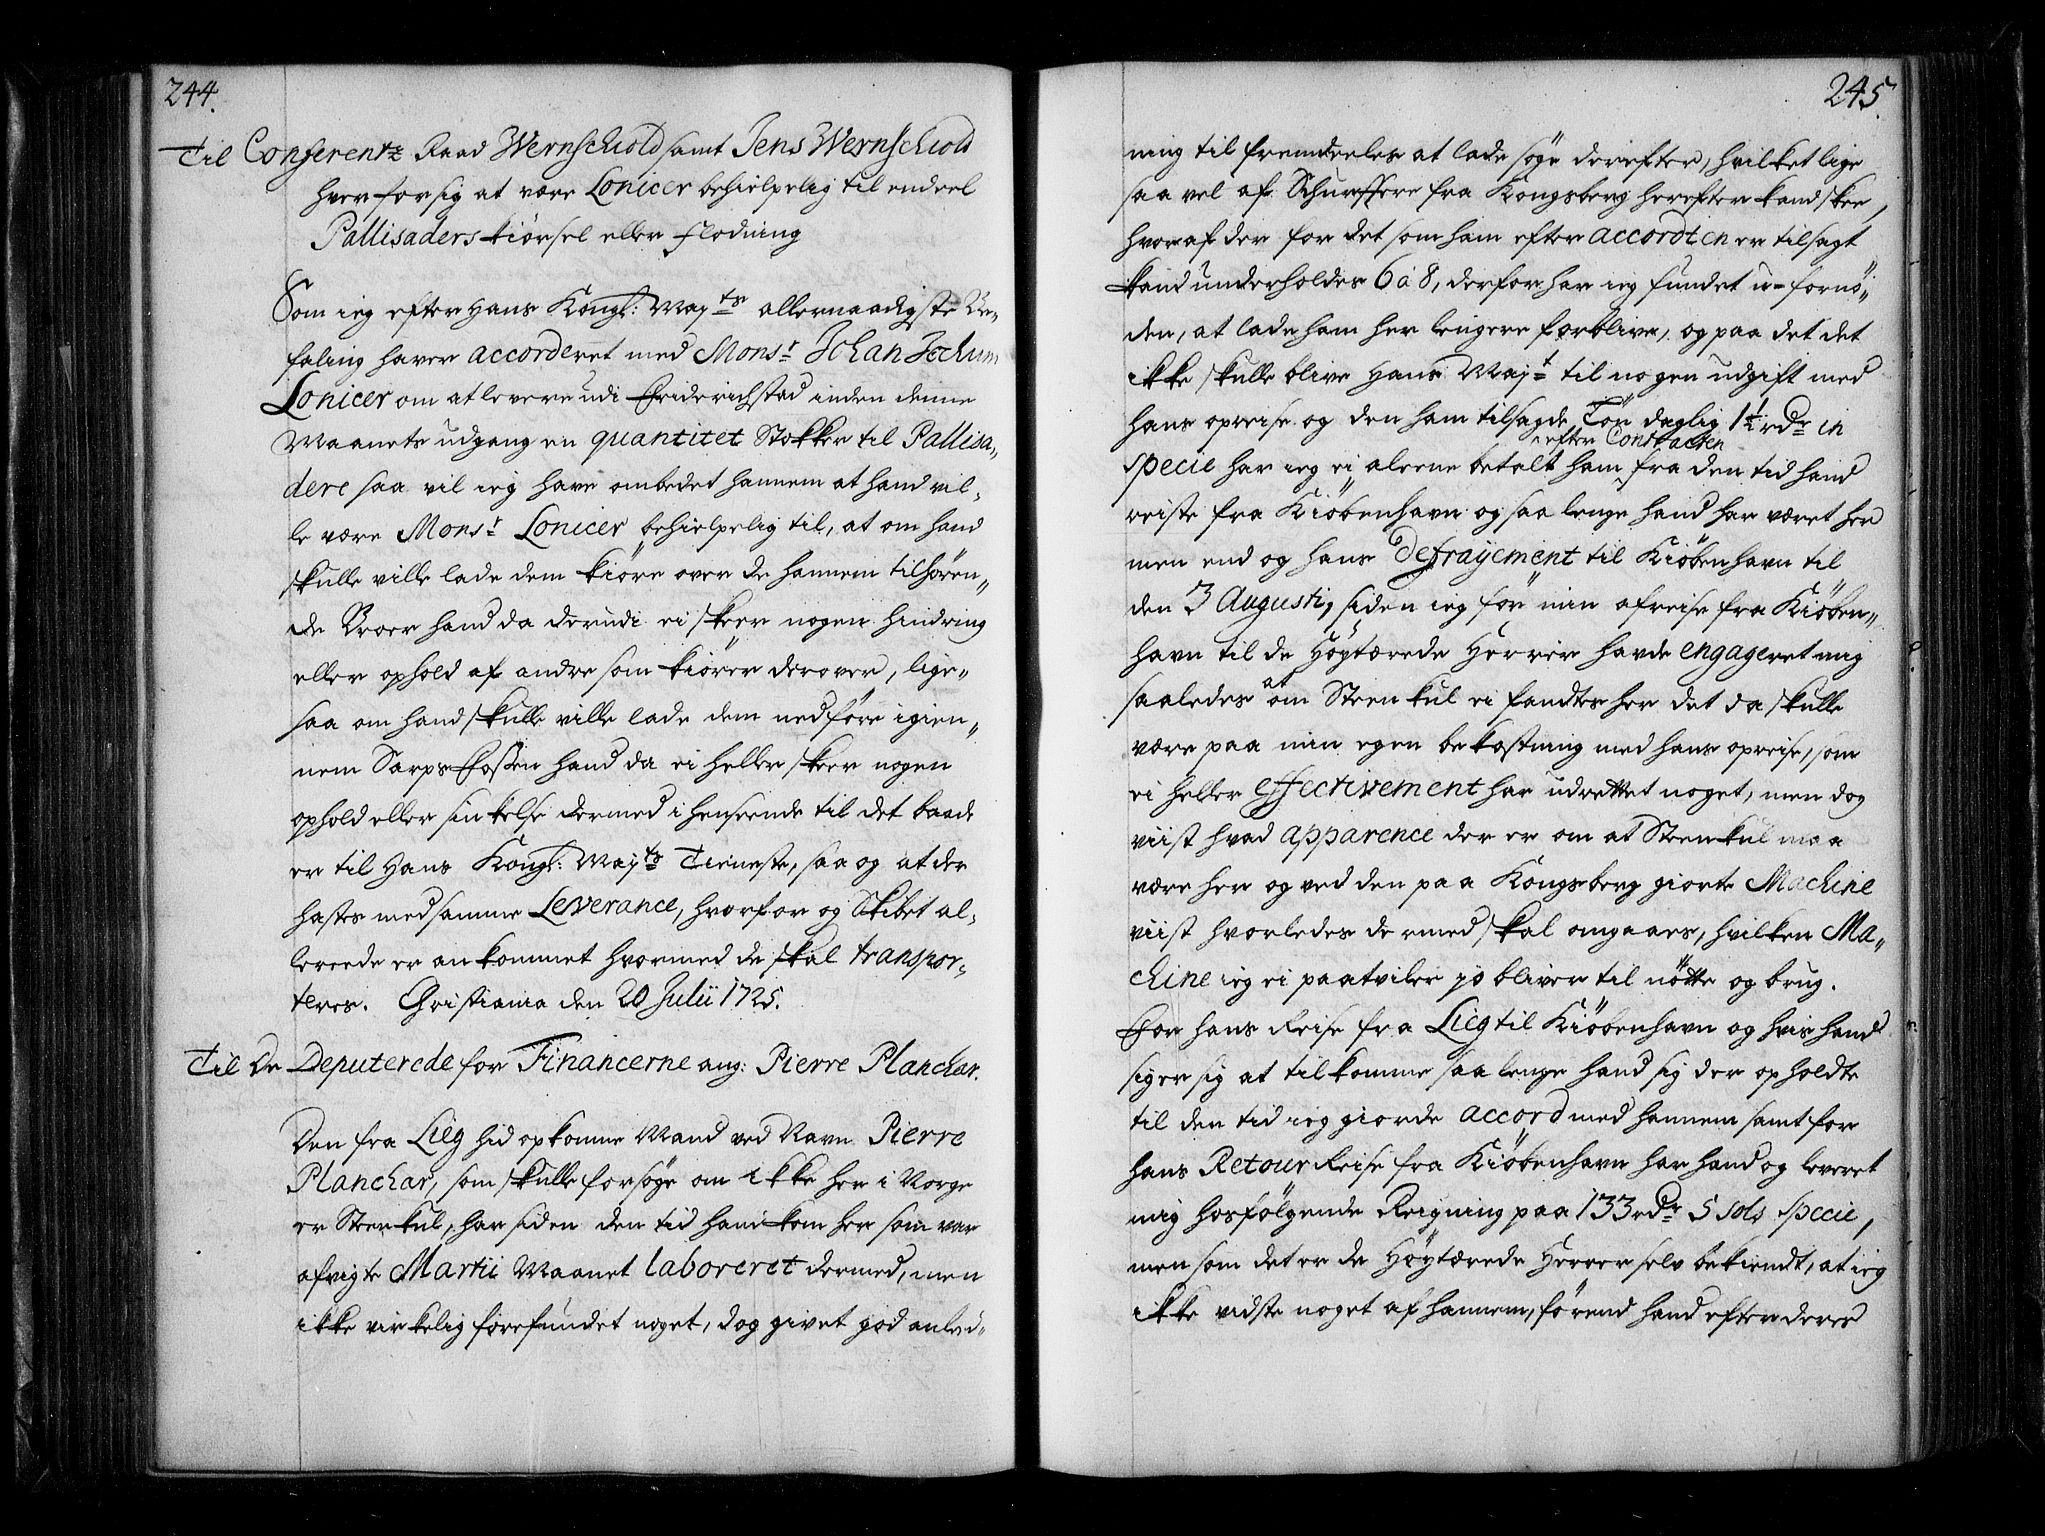 244.
Til Conferentz Raad Wernschiold samt Jens Wernschiold
hver for sig at være Lonicer behielpelig til endeel
Pallisaders kiørsel eller flodning
Som ieg efter Hans Kongl: Mayts allernaadigste Be-
faling haver accorderet med Monsr Johan Jochum
Lonicer om at levere udi Friderichstad inden denne
Maanets udgang en quantitet Stokker til Pallisa-
dere saa vil ieg have ombedet hannem at hand vil-
le være Monsr Lonicer behielpelig til, at om hand
skulle ville lade dem kiøre over de hannem tilhøren-
de Broer hand da derudi ei skeer nogen hindring
eller ophold af andre som kiører derover, lige-
saa om hand skulle ville lade dem nedføre igien-
nem Sarps Fossen hand da ei heller skeer nogen
ophold eller sinkelse dermed i henseende til det baade
er til Hans Kongl: Mayts Tieneste, saa og at der
hastes med samme Leverance, hvorfor og Skibet al-
lereede er ankommet hvormed de skal transpor-
teres. Christiania den 20 Julii 1725.
Til De Deputerede for Financerne ang: Pierre Planchar.
Den fra Lieg hid opkomne Mand ved Navn Pierre
Planchar, som skulle forsøge om ikke her i Norge
er Steenkul, har siden den tid hand kom her som var
afvigte Martii Maanet laboreret dermed, men
ikke virkelig forefundet noget, dog givet god anled-
245.
ning til fremdeeles at lade søge derefter, hvilket lige
saa vel af Schurffere fra Kongsberg herefter kand skee,
hvoraf der for det som ham efter accordten er tilsagt
kand underholdes 6 à 8, derfor har ieg fundet u-fornø-
den, at lade ham her lengere forblive, og paa det det
ikke skulle blive Hans Mayt til nogen udgift med
hans opreise og den ham tilsagde Løn daglig 1½ rdr in
efter Contracten
specie har ieg ei aleene betalt ham fra den tid hand
reiste fra Kiøbenhavn og saa lenge hand har været her
men end og hans Defrayement til Kiøbenhavn til
den 3 Augusti, siden ieg før min afreise fra Kiøben-
havn til de Høytærede Herrer havde engageret mig
saaledes at om Steenkul ei fandtes her det da skulle
være paa min egen bekostning med hans opreise, som
ei heller effectivement har udrettet noget, men dog
viist hvad apparence der er om at Steenkul maa
være her og ved den paa Kongsberg giorte Machine
viist hvorledes dermed skal omgaaes, hvilken Ma-
chine ieg ei paatviler jo bliver til nøtte og brug.
For hans Reise fra Lieg til Kiøbenhavn og hvis hand
siger sig at tilkomme saa lenge hand sig der opholdte
til den tid ieg giorde accord med hannem samt for
hans Retour Reise fra Kiøbenhavn har hand og leveret
mig hosfølgende Reigning paa 133 rdr 5 sols specie,
men som det er de Høytærede Herrer selv bekiendt, at ieg
ikke vidste noget af hannem, førend hand efter deres